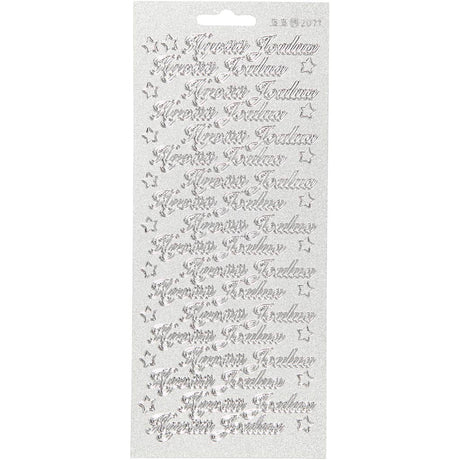 Hyvää Joulua
Hyvää Joulua
Hyvää Joulua
Hyvää Joulua
Hyvää Joulua
Hyvää Joulua
Hyvää Joulua
Hyvää Joulua
Hyvää Joulua
Hyvää Joulua
Hyvää Joulua
Hyvää Joulua
Hyvää Joulua
Hyvää Joulua
Hyvää Joulua
Hyvää Joulua
Hyvää Joulua
Hyvää Joulua